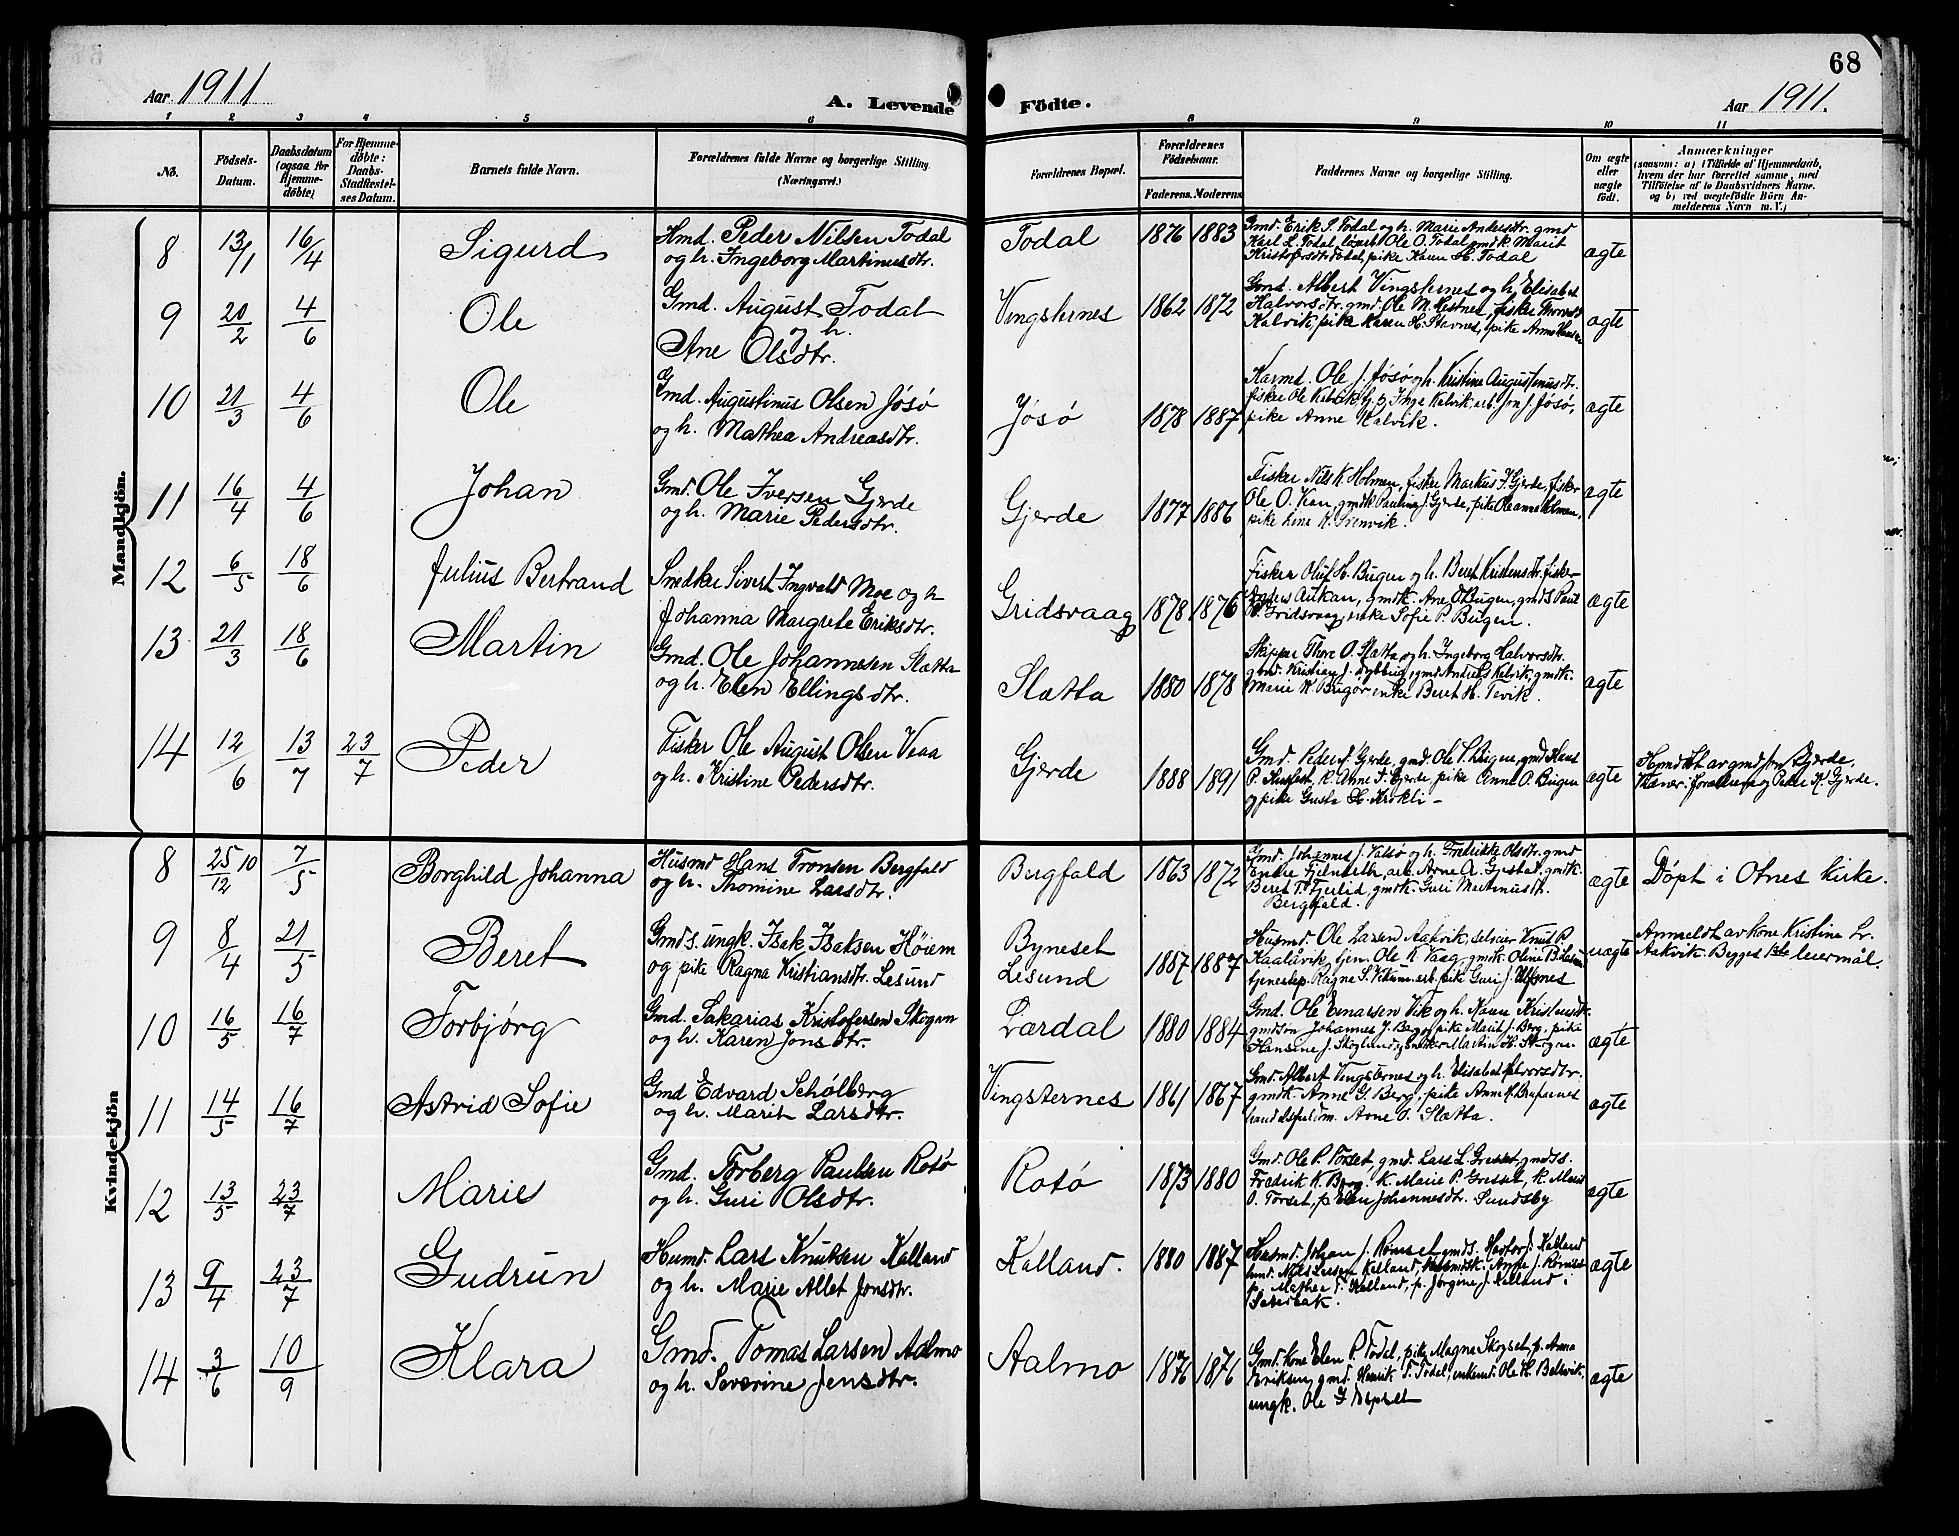 68
Aar 1911
A. Levende Födte.
Aar 1911.
1 2 3 4 5 6 8 9 10 11
No.
Födsels-
Datum.
Daabsdatum
(ogsaa for
Hjemme-
døbte)
For Hjemme-
døbte:
Daabs-
Stadfæstel-
ses Datum.
Barnets fulde Navn.
Forældrenes fulde Navne og borgerlige Stilling.
(Næringsvei.)
Forældrenes Bopæl.
Forældrenes
Födselsaar.
Faderens. Moderens.
Faddernes Navne og borgerlige Stilling.
Om ægte
eller
uægte
født.
Anmærkninger
(saasom: a) i Tilfælde af Hjemmedaab,
hvem der har forrettet samme, med
Tilföielse af to Daabsvidners Navne.
og b) ved uægtefödte Börn An-
melderens Navn m. V.)
Mandkjön.
8 13/1 16/4 Sigurd
Hmd. Peder Nilsen Todal
og h. Ingeborg Martinusdtr.
Todal 1876 1883
Gmd. Erik I. Todal og h. Marie Andersdtr. gmd
Karl L. Todal, Ole O. Todal gmdk Marit
Kristofersdtr Todal, pike Karen H. Todal
ægte
9 20/2 4/6 Ole
Gmd. August Todal
og h.
Ane Olsdtr.
Vingsternes 1862 1872
Gmd. Albert Vingsternes og h. Elisabet
Halvorsdtr. gmd. Ole M. Hestnes, fisker
Kalvik, pike Karen H. Stavnes, pike Anne Hansen
ægte
10 21/3 4/6 Ole
Gmd. Augustinus Olsen Jösö
og h. Mathea Andreasdtr.
Jösö 1878 1887
Karmd. Ole J. Jösö og h. Kristine Augustinusdtr.
fisker Ole Kalvik, Inge Kalvik, arb. Jon J. Jösö,
pike Anne Kalvik.
ægte
11 16/4 4/6 Johan
Gmd. Ole Iversen Gjerde
og h. Marie Pedersdtr.
Gjerde 1877 1886
Fisker Nils K. Holmen, fisker Markus I. Gjerde, fisker
Ole O. Kan, gmdk Pauline J. Gjerde, pike Oleanna Holmen,
pike Line K.
ægte
12 6/5 18/6 Julius Bertrand
Snedker Sivert Ingvald Moe og h
Johanna Margrete Eriksdtr.
Gridsvaag 1878 1876
Fisker Oluf H. Bugen og h. Beret Kristensdtr. fisker
Anders Autkan, gmdk. Ane O. Bugen, gmds Paul
P. Gridsvaag, enke Sofie P. Bugen.
ægte
13 21/3 18/6 Martin
Gmd. Ole Johannesen Slætta
og h. Elen Ellingsdtr.
Slætta 1880 1878
Skipper Thore O. Slætta og h. Ingeborg Halvorsdtr.
gmd. Kristian J. gmd Andreas Kalvik, gmdk.
Marie K. enke Beret H.
ægte
14 12/6 13/7 23/7 Peder
Fisker Ole August Olsen Veaa
og h. Kristine Pedersdtr.
Gjerde 1888 1891
Gmd. Peder J. Gjerde, gmd. Ole P. Bugen, gmd Hans
P. k. Anne I. Gjerde pike Anne O. Bugen
og pike Gusta H. Krokli –
ægte
Hjmdöbt av gmd Jon Gjerde,
Tilstvær: forældrene og Peder K. Gjerde.
Kvindekjön
8 25/12 10 7/5 Borghild Johanna
Husmd Hans Tronsen Bergfald
og h. Thomine Larsdtr.
Bergfald 1863 1872
Gmd. Johannes J. Valsö og h. Fredrikke Olsdtr. gmd
Endre Fjelnseth, arb. Arne A. Gjestad, gmdk.
Beret T. Fjerlid, gmdk. Guri Martinusdtr.
Bergfald.
ægte
Döpt i Otnes kirke.
9 8/4 21/5 Beret
Gmds. ungk. Isak Isaksen Höiem
og pike Ragna Kristiansdtr. Lesund
Byneset
Lesund 1887 1887
Husmd. Ole Larsen Aakvik, selveier Knut P.
tjen. Ole K. Vaag, gmdk. Oline P. Lesund
tjenestep. Ragna S. pike Guri J. Ulfsnes
uægte
Anmeldt av kone Kristine Lr.
Aakvik. Begges 1ste leiermål.
10 16/5 16/7 Torbjörg
Gmd. Sakarias Kristofersen Skogan
og h. Karen Jonsdtr.
Lærdal 1880 1884
Gmd. Ole Einarsen Vik og h. Karen Kristensdtr.
gmdsön Johannes J. Berg, pike Marit J. Berg, pike
Hansine J. Skoglund, snekker Martin H. Skogan.
ægte
11 14/5 16/7 Astrid Sofie
Gmd Edvard Schölberg
og h. Marit Larsdtr.
Vingsternes 1861 1867
Gmd. Albert Vingsternes og h. Elisabet Halvorsdtr.
gmdk. Anne G. Berg, pike Anne M.
Arne I. Slætta.
ægte
12 13/5 23/7 Marie
Gmd. Torberg Paulsen Rotö
og h. Guri Olsdtr.
Rotö 1873 1880
Gmd. Ole P. Torset, gmd. Lars L. Gresset, gmds.
Fredrik K. Berg, k. Marie P. Gresset, k. Marit
O. Torset, p. Elen Johannesdtr. Sundsby
ægte
13 9/4 23/7 Gudrun
Husmd. Lars Knutsen Kalland
og h. Marie Allet Jonsdtr.
Kalland. 1880 1887
Husmd. Johan J. Romset, gmds. Kalland
hmd. Nils Larsen Kalland, Anne J. Romset
p. Mathea T. Kalland, p. Jorgine J. Kalland
ægte
14 3/6 10/9 Klara
Gmd. Tomas Larsen Aalmo
og h. Severine Jensdtr.
Aalmo 1876 1876
Gmd. kone Elen P. Todal, pike Magna Skogset, p. Anna
Eriksen, gmd. Henrik T. Todal, enkemd. Ole H. Bolsvik,
ungk. Ole I.
ægte